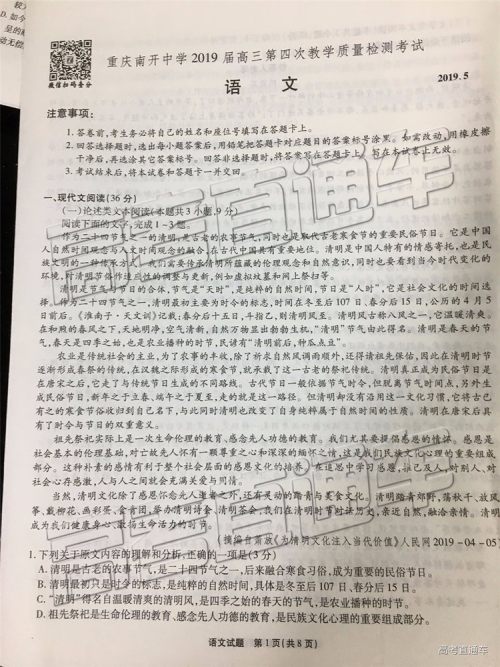 重庆南开中学2019届高三第四次教学质量检测考试
微信扫码查分
语 文
2019.5
注意事项：
1. 答卷前，考生务必将自己的姓名和座位号填写在答题卡上。
2. 回答选择题时，选出每小题答案后，用铅笔把答题卡对应题目的答案标号涂黑。如需改动，用橡皮擦
干净后，再选涂其它答案标号。回答非选择题时，将答案写在答题卡上。写在本试卷上无效。
3. 考试结束后，将本试卷和答题卡一并交回。
一、现代文阅读(36分)
(一)论述类文本阅读(本题共3小题，9分)
阅读下面的文字，完成1~3题。
作为二十四节气之一的清明，是古老的农事节气，同时也是取代古老寒食节的重要民俗节日。它是中国
人自然时间观念与人文时间观念的融合，在古代中国具有重要地位。清明是中国人特有的情感寄托，也是民
族文明的一种传承方式。我们需要传承清明所蕴藏的伦理观念和自然意识，同时也要看到当今时代变化的
环境，对清明节俗作适应性的调整与更新，例如虚拟坟墓和网上祭扫等。
清明是节气与节日的合体，节气是“天时”，是纯粹的自然时间，节日是“人时”，它是社会文化的时间选
择。作为二十四节气之一，清明最初主要为时令的标志，时间在冬至后107日、春分后15日，公历的4月5
日前后。《淮南子·天文训》记载，春分后十五日，斗指乙，则清明风至。清明风古称八风之一，它温暖清爽。
在和煦的春风之下，天地明净，空气清新，自然万物显出勃勃生机，“清明”节气由此得名。清明是春天的节
气，春天是四季之始，也是农业播种的时节，民谚有“清明前后，种瓜点豆”。
农业是传统社会的主业，为了农事的丰收，除了祈求自然风调雨顺外，还得请祖先保佑，因此在清明时节
逐渐形成春祭的传统，在汉魏之际形成的寒食节，就承载了这一古老的祭祀传统。清明真正成为民俗节日是
在唐宋之后，它走了与传统节日生成的不同路线。古代节日一般依据节气时令，但脱离节气时间点，另外生
成民俗节日，新年之于立春、端午之于夏至，走的就是这一路径。但清明却没有沿用这一文化习惯，它将古已
有之的寒食节俗收归到自己名下，与此同时清明也改变了自身纯粹属于自然时间的性质。清明在唐宋后具
有了时令与节日的双重意义。
祖先祭祀实际上是一次生命伦理的教育，感念先人功德的教育。我们尤其要提倡感恩的情怀。感恩是
社会基本的伦理基础，对于故先人怀有一颗尊重之心和深深的缅怀之情，这是我们民族文化心理的重要组成
部分。这种朴素的感情有利于整个社会层面的感恩文化的培养。在追思中学习感恩，推己及人，对别人、对
社会心存感激，人与人之间就会充满关爱与同情。
当然，清明文化除了感恩怀念先人逝者之外，还有灵动的踏青与美食文化。清明踏青郊野，荡秋千、放风
筝、戴柳花、画彩蛋、食青团，举办清明诗会、清明茶会，我们在清明时节对话历史，亲近自然，融洽亲情。清明
成为我们健康身心、激扬生命活力的时节。
人民网2019-04-05)
1. 下列关于原文内容的理解和分析，正确的一项是(3分)
A. 清明是古老的农事节气，是二十四节气之一，后来融合寒食习俗，成为重要的民俗节日。
B. 清明最初只是时令的标志，是纯粹的自然时间，具体是冬至后107日、春分后15日。
C. “清明”得名自温暖清爽的清明风，是四季之始的春天的节气，是农业播种的时节。
D. 祖先祭祀是生命伦理的教育、感念先人功德的教育，是民族文化心理的重要组成部分。
语文试题 第1页(共8页)
高考直通车
高考直通车